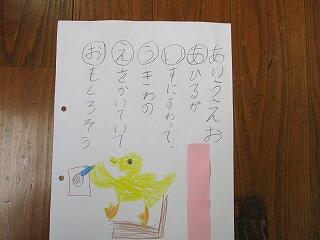 あいうえお
あひるが
いすにすわって、
うきわの
えをかいていて
おもしろそう